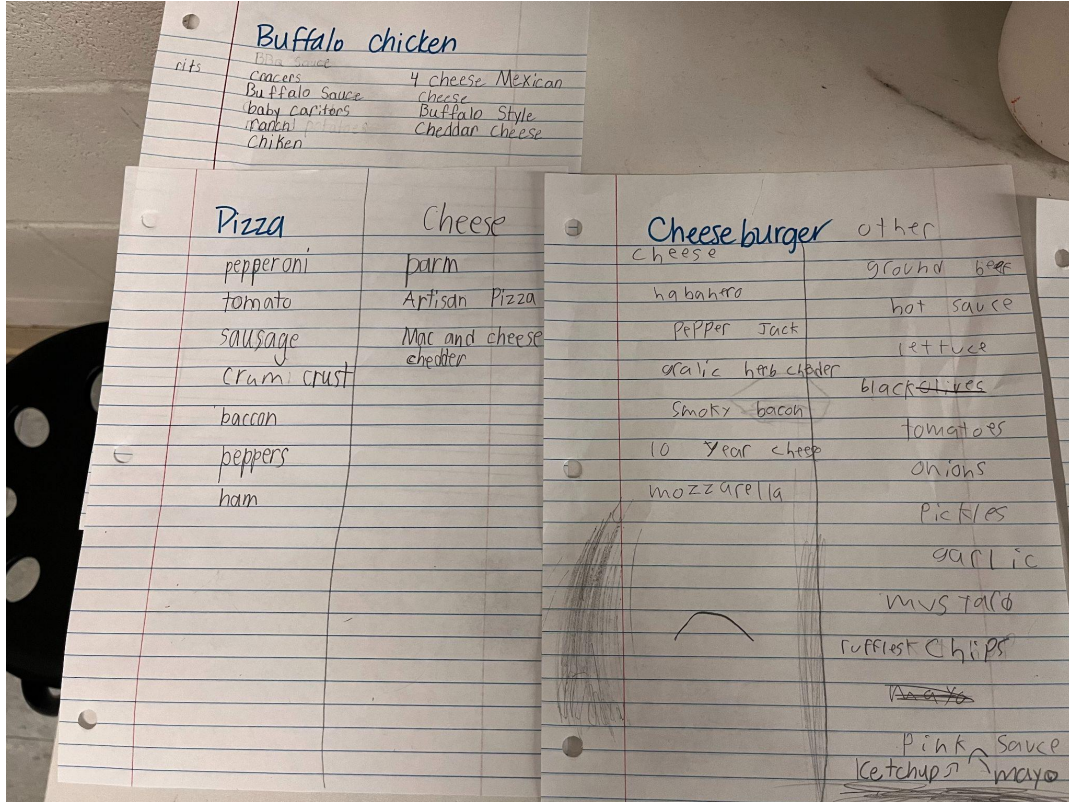 Buffalo chicken
BBQ Sauce
rits
cracers
Buffalo Sauce
baby caritors
ranch
Chiken
4 cheese Mexican
cheese
Buffalo Style
Cheddar cheese
Pizza
pepperoni
tomato
sausage
crum crust
baccon
peppers
ham
Cheese
parm
Artisan Pizza
Mac and cheese
chedder
Cheeseburger
cheese
habanero
Pepper Jack
gralic herb cheder
Smoky bacon
10 year chees
mozzarella
other
ground beef
hot sauce
lettuce
black olives
tomatoes
onions
Pickles
garlic
mustard
rufflest Chips
mayo
Pink sauce
Ketchup mayo